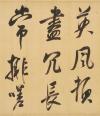 英風頓
盡冗長
常排嗟